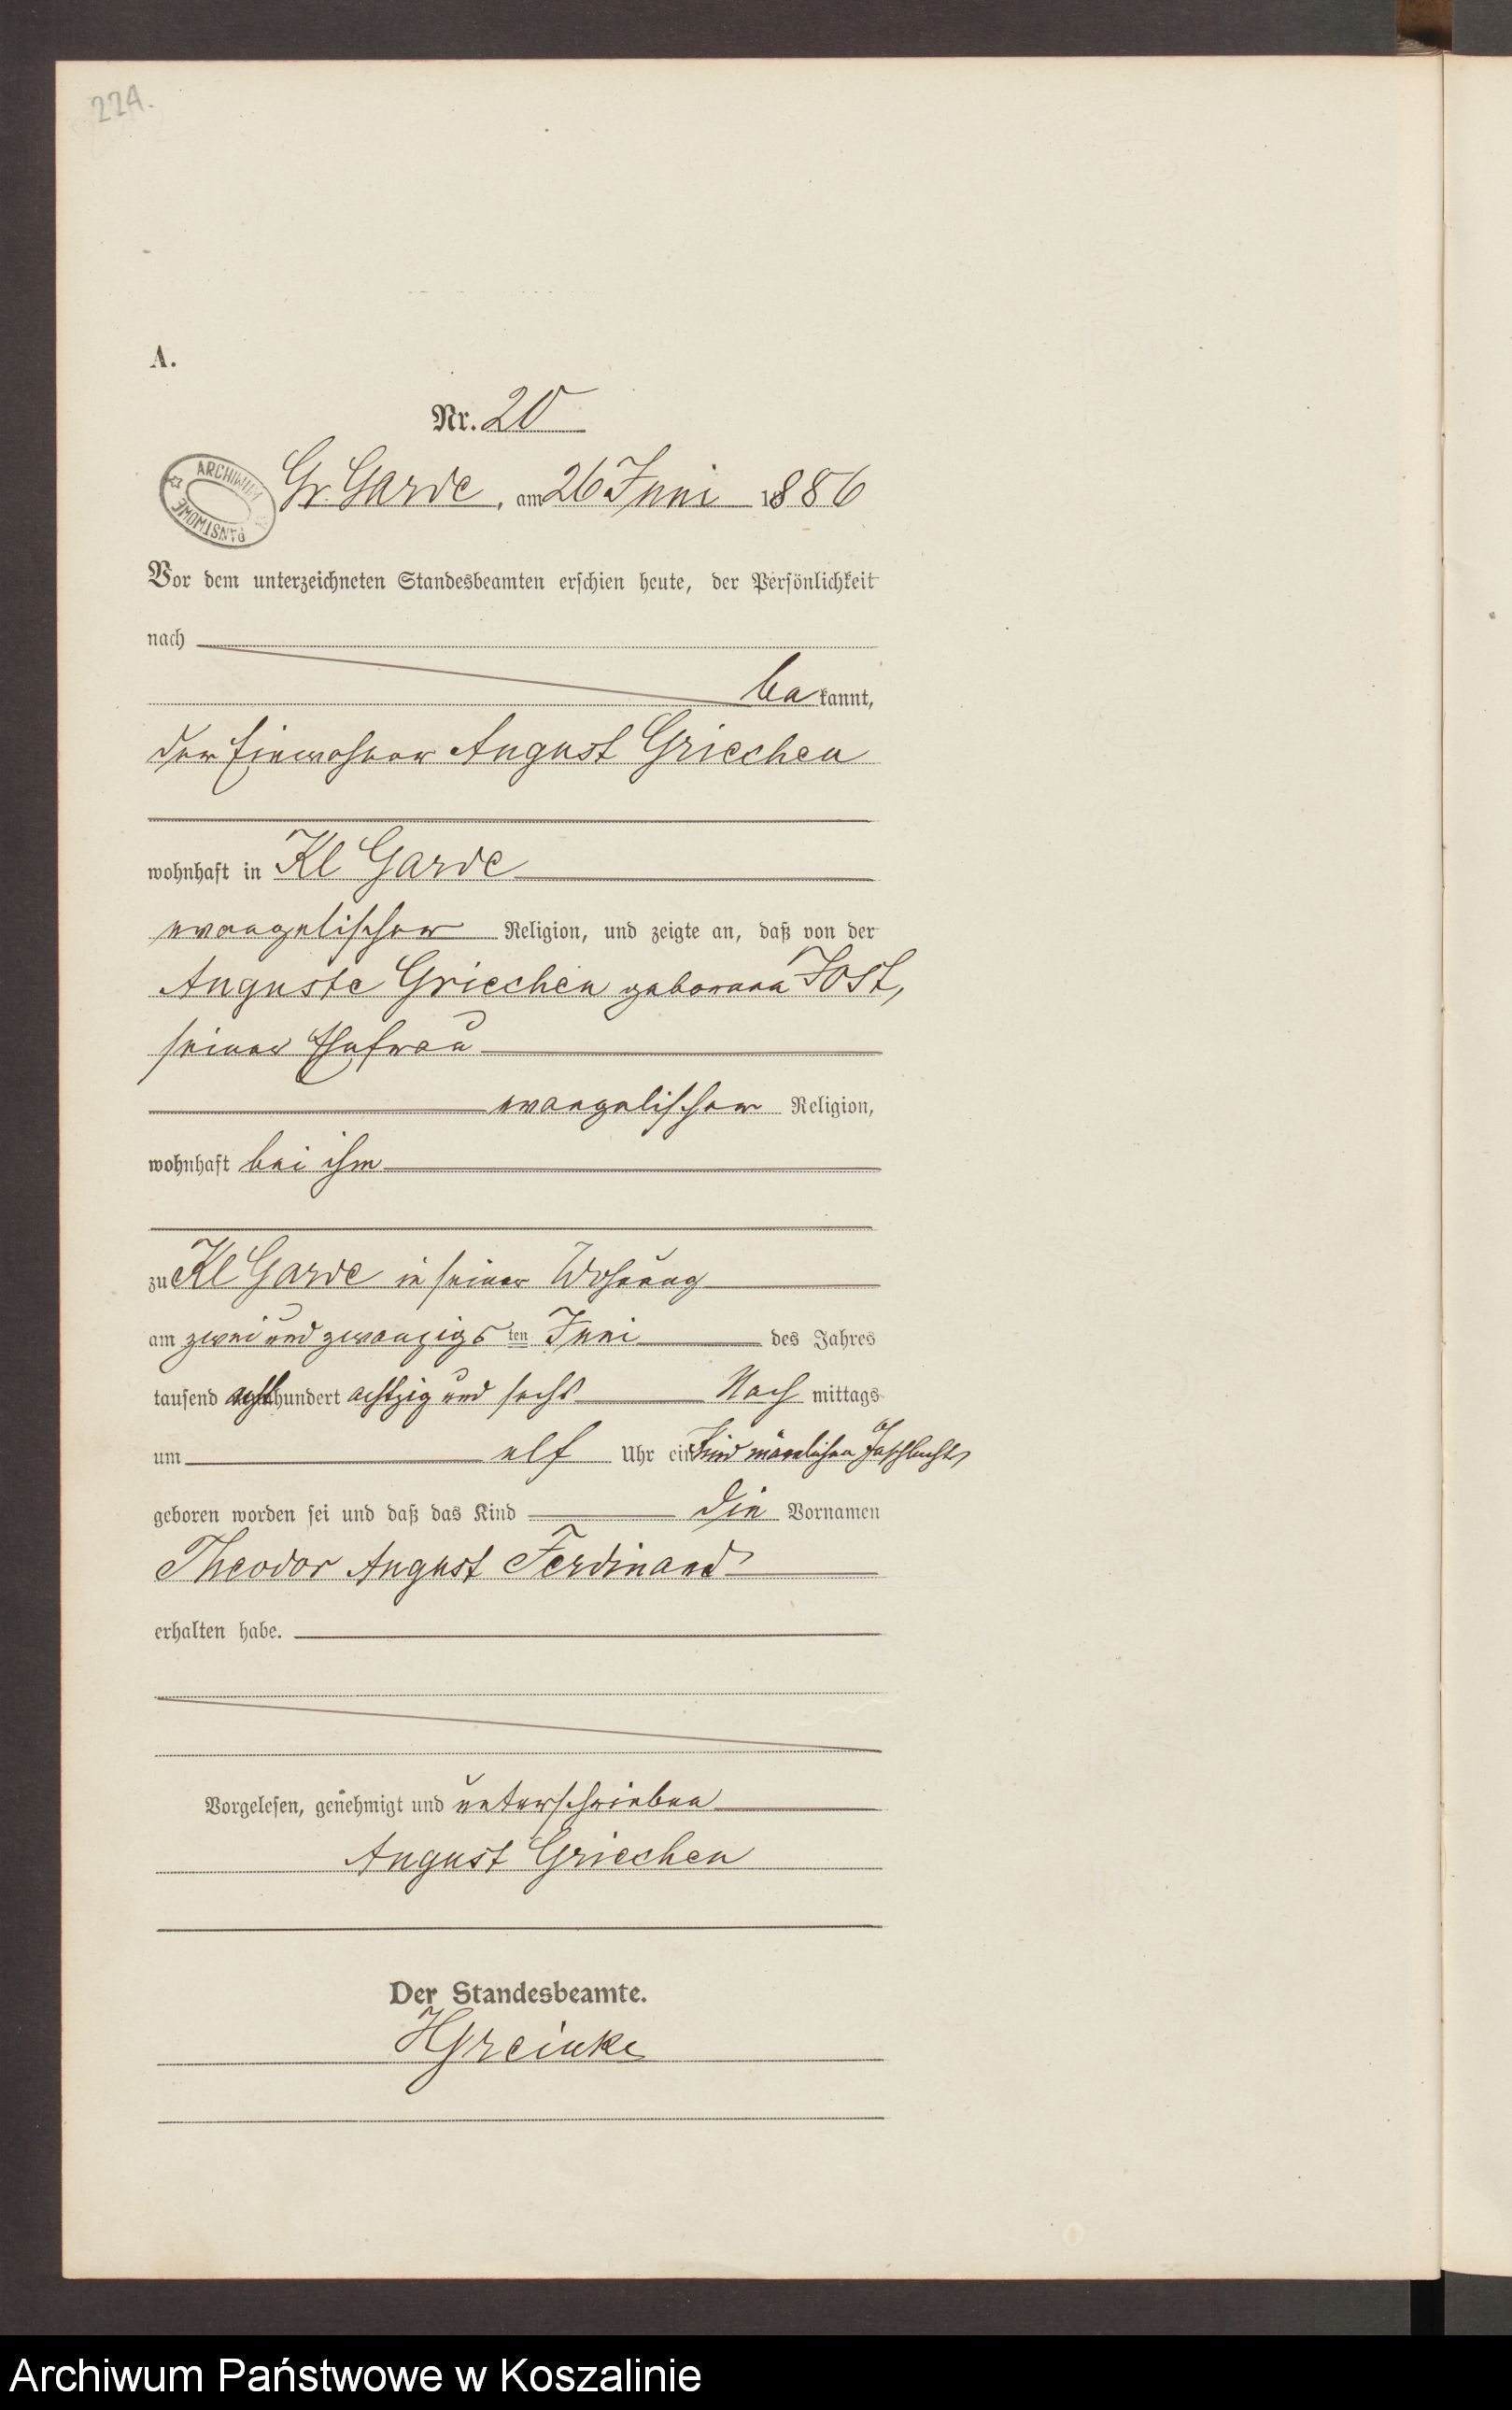 224.
A.
Nr. 20
ARCHIWUM PAŃSTWOWE
Gr. Garde, am 26 Juni 1886
Vor dem unterzeichneten Standesbeamten erschien heute, der Persönlichkeit
nach
bekannt,
der Einwohner August Griechen
wohnhaft in Kl Garde
evangelischer Religion, und zeigte an, daß von der
Auguste Griechen geborene Jost,
seiner Ehefrau
evangelischer Religion,
wohnhaft bei ihm
zu Kl Garde in seiner Wohnung
am zwei und zwanzigsten Juni des Jahres
tausend achthundert achtzig und sechs Nach mittags
um elf Uhr ein Kind männlichen Geschlechts
geboren worden sei und daß das Kind die Vornamen
Theodor August Ferdinand
erhalten habe.
Vorgelesen, genehmigt und unterschrieben
August Griechen
Der Standesbeamte.
Archiwum Państwowe w Koszalinie